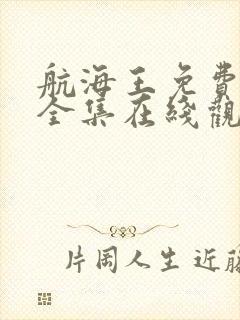 航海王免費
全集在綫觀
片岡人生 近藤